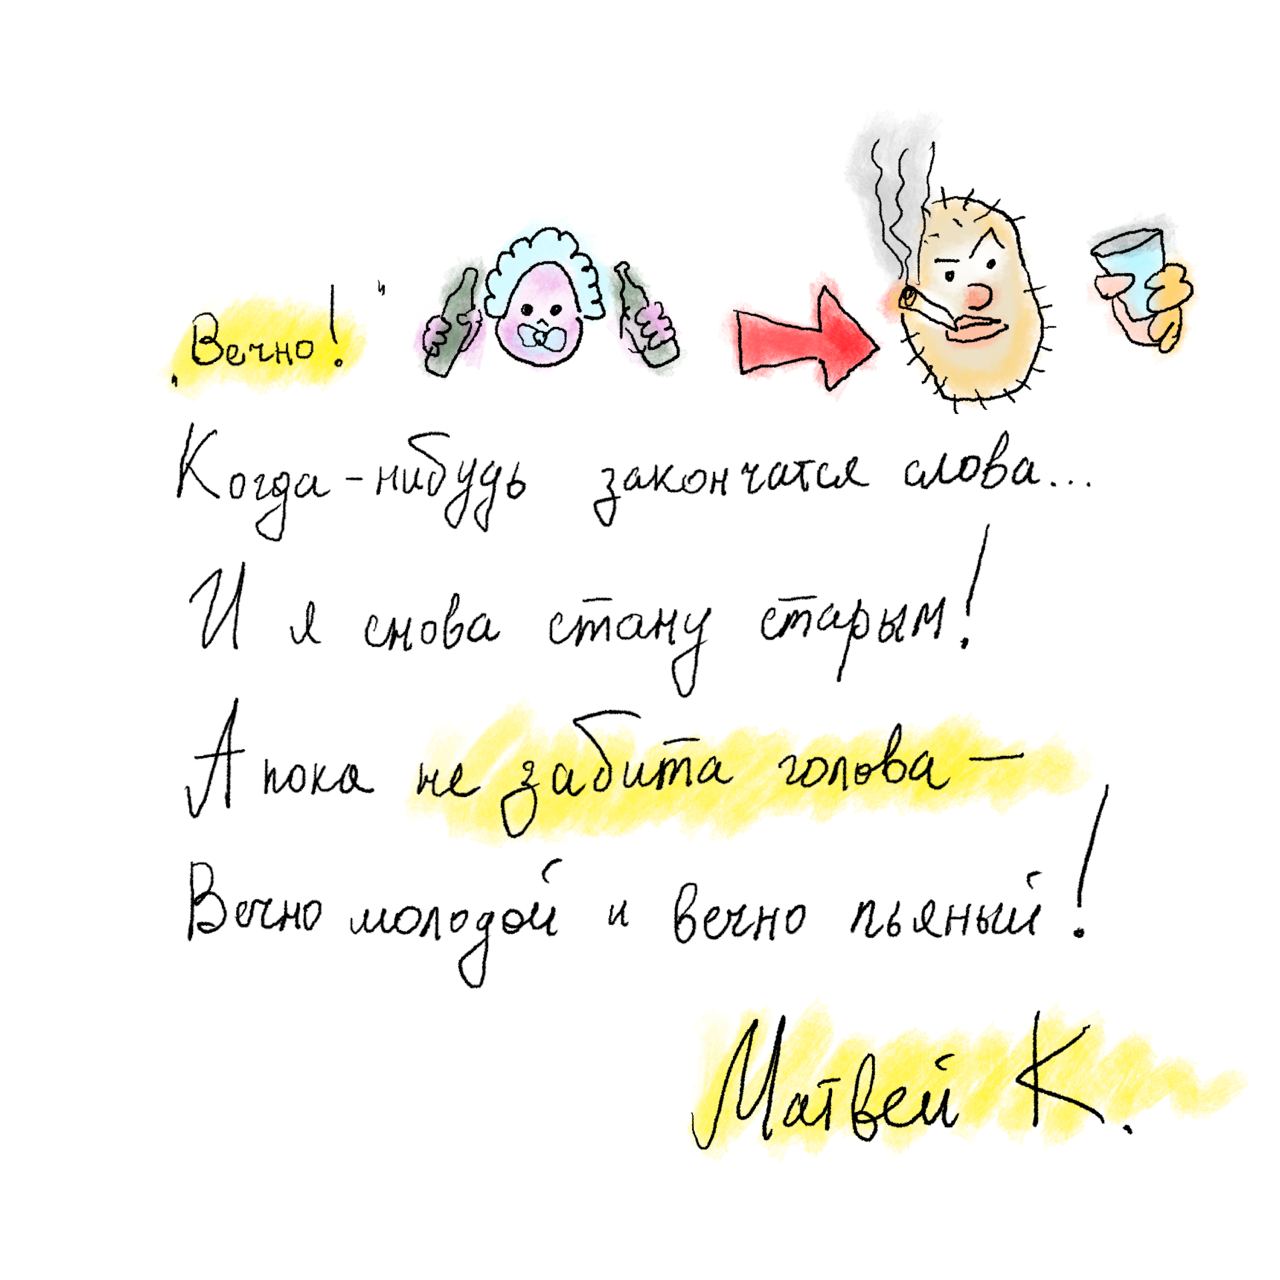 „Вечно!"
Когда-нибудь закончатся слова...
И я снова стану старым!
А пока не забита голова —
Вечно молодой и вечно пьяный!
Матвей К.